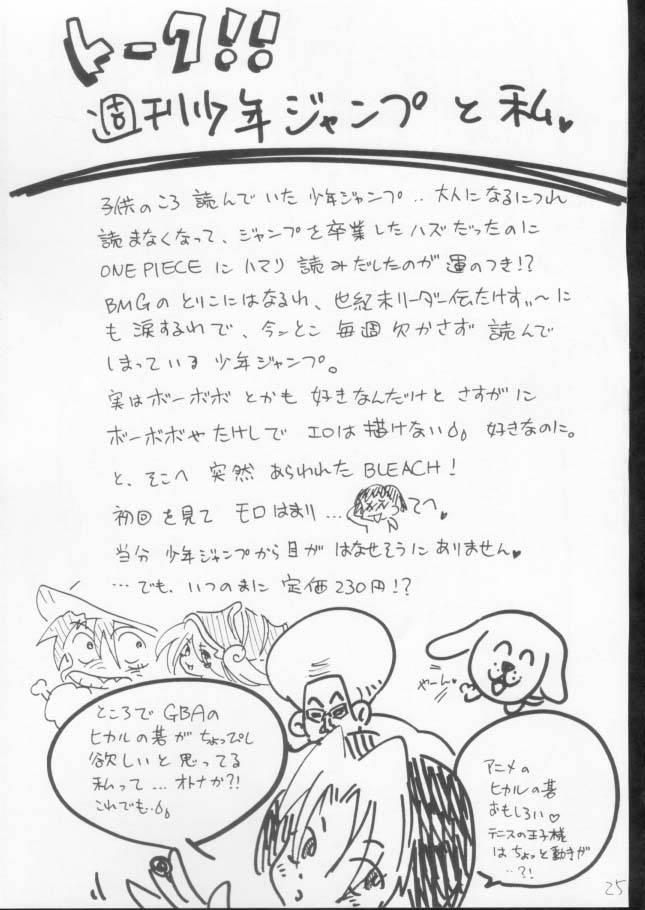 トーク!!
週刊少年ジャンプと私♥
子供のころ 読んでいた 少年ジャンプ‥大人になるにつれ
読まなくなって、ジャンプを卒業したハズだったのに
ONE PIECEに ハマリ 読みだしたのが 運のつき!?
BMGの とりこにはなるわ、世紀末リーダー伝たけすぃ〜に
も 涙するわで、今んとこ 毎週 欠かさず 読んで
しまっている 少年ジャンプ。
実はボーボボ とかも 好きなんだけど さすがに
ボーボボや たけしで エロは描けない 好きなのに。
と、そこへ 突然 あらわれた BLEACH!
初回を見て モロはまり… てへ♥
当分 少年ジャンプから目が はなせそうに ありません♥
…でも、いつのまに 定価230円!?
やーん
ところで GBAの
ヒカルの碁が ちょっぴし
欲しいと 思ってる
私って…オトナか?!
これでも‥
アニメの
ヒカルの碁
おもしろい♡
テニスの王子様
はちょっと動きが
‥?!
25